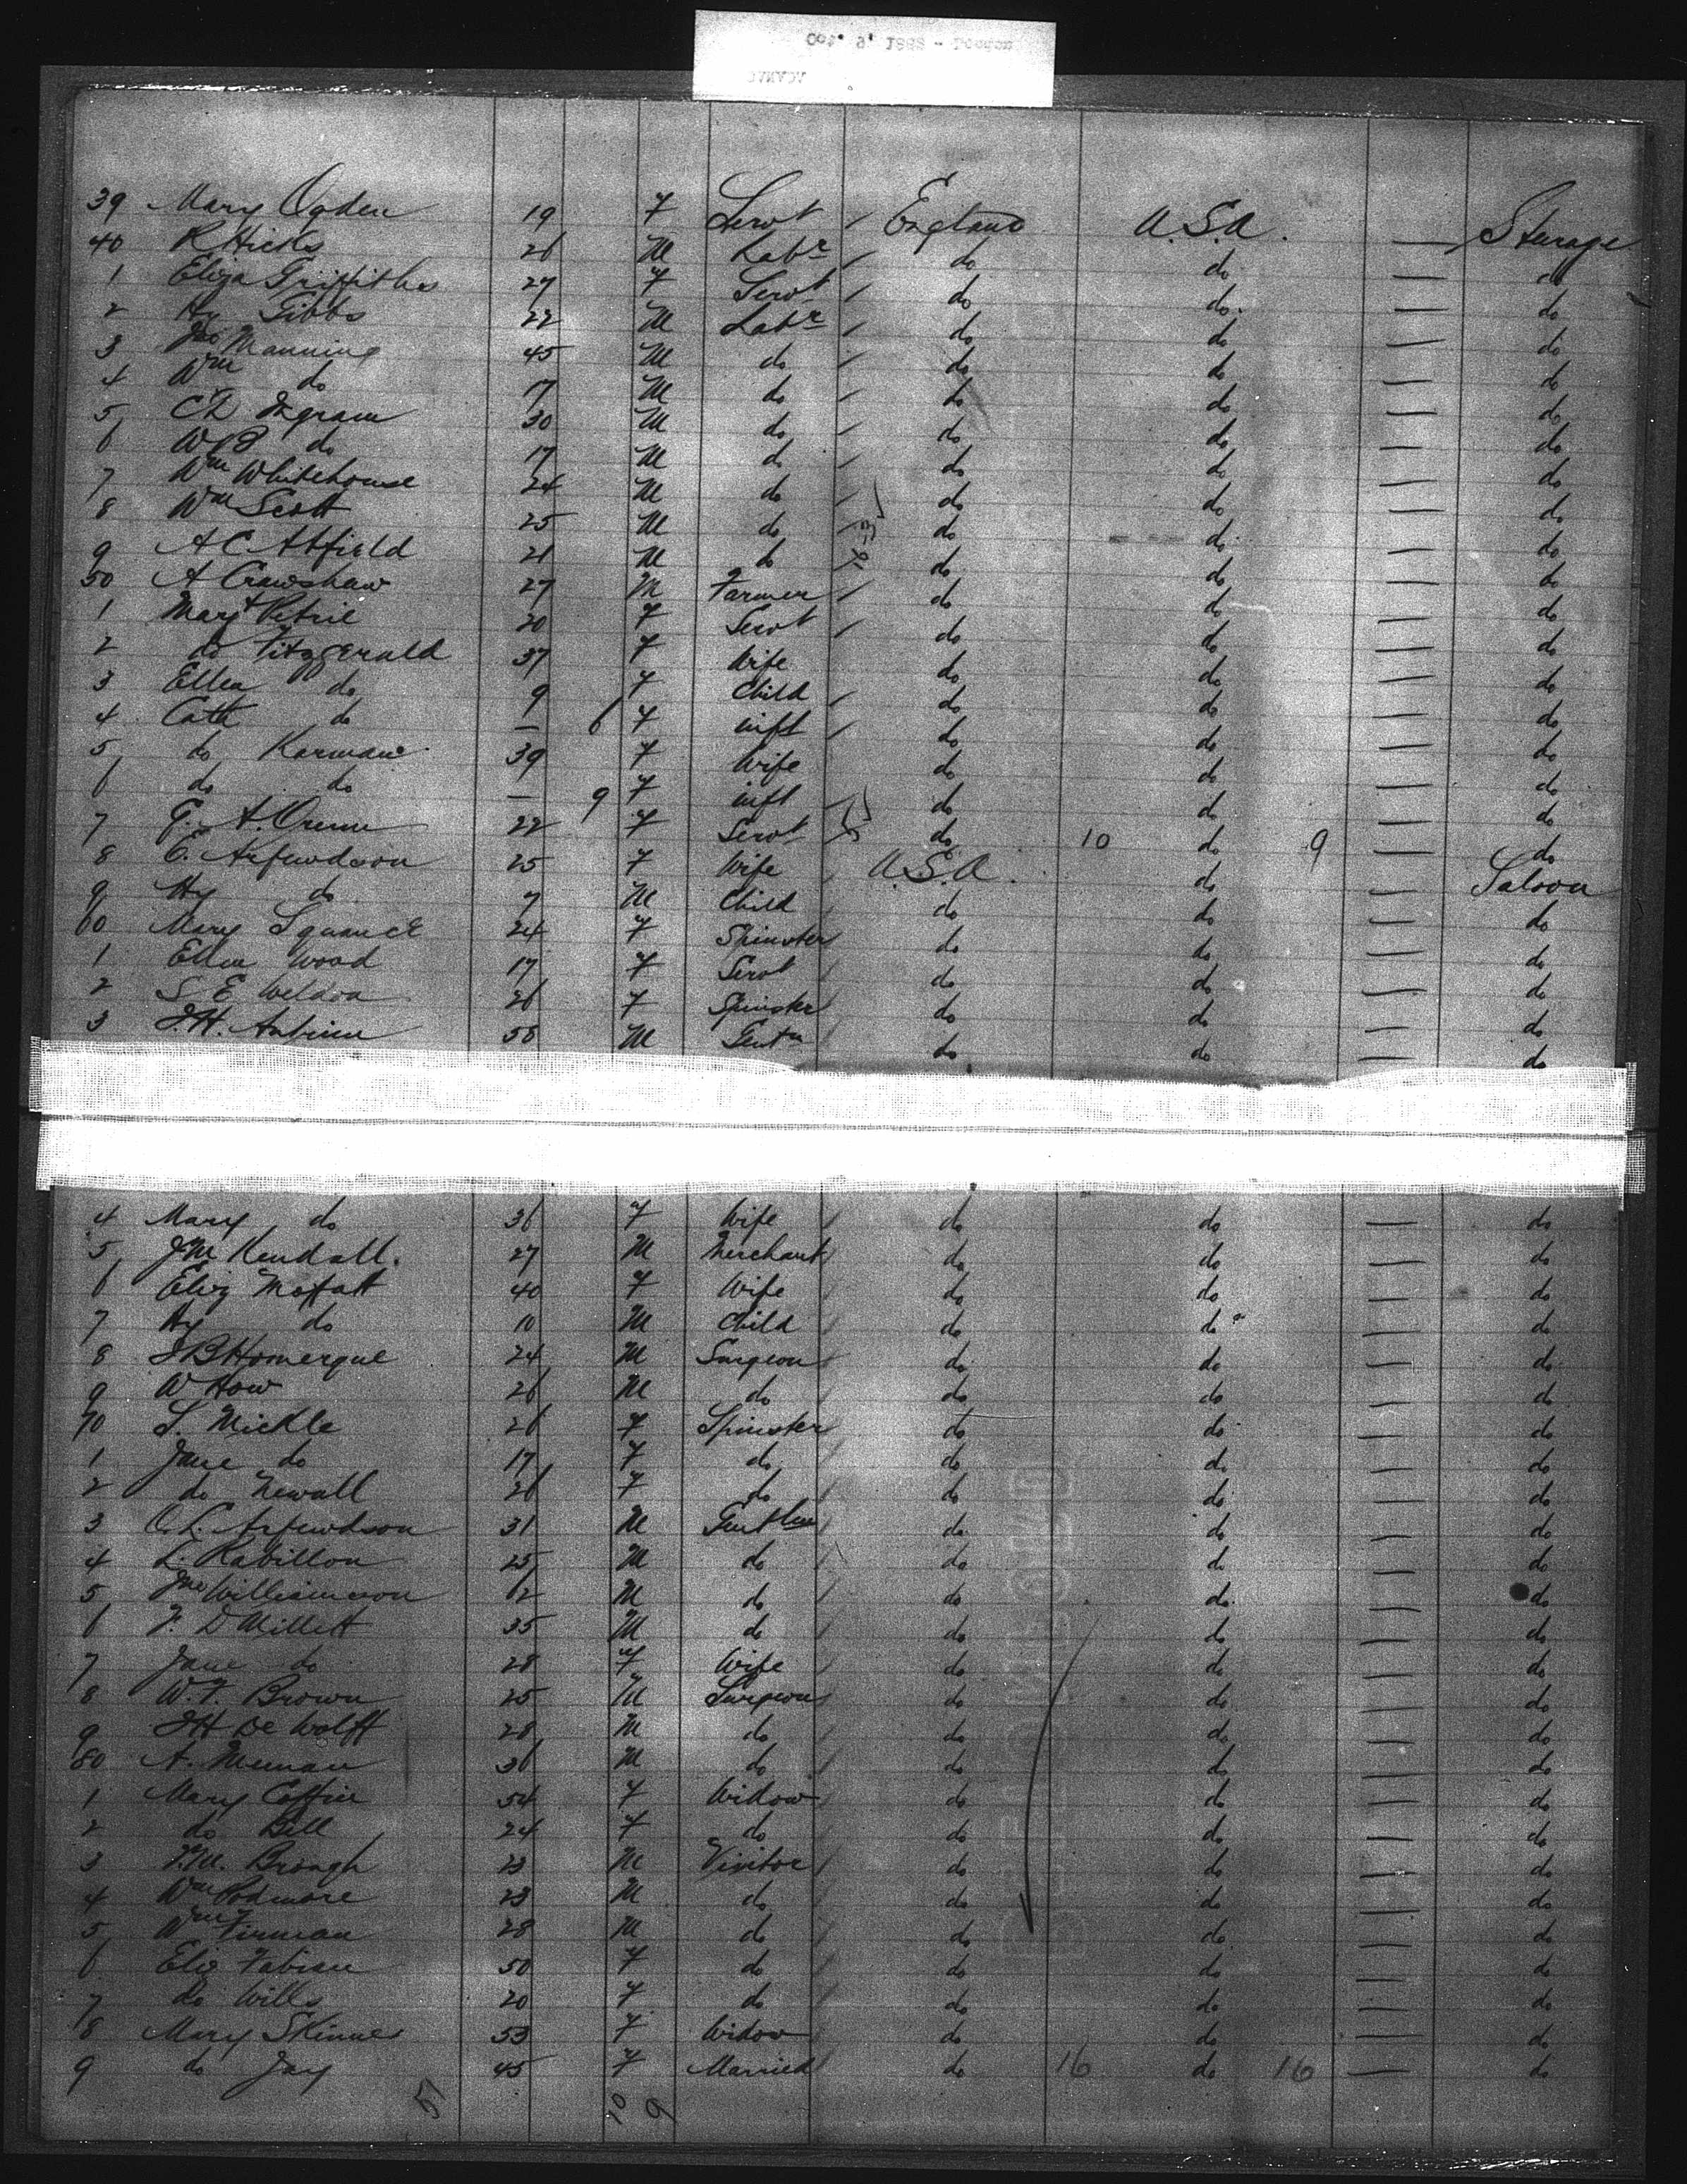 39 Mary Ogden 19 F Servt / England U.S.A. — Steerage
40 R Hicks 26 M Labr / do do — do
1 Eliza Griffiths 27 F Servt / do do — do
2 Hy Gibbs 22 M Labr / do do — do
3 Jno Manning 45 M do / do do — do
4 Wm do 17 M do / do do — do
5 C D Ingram 30 M do / do do — do
6 W do 17 M do / do do — do
7 Wm Whitehouse 24 M do / do do — do
8 Wm Scott 25 M do / do do — do
9 A C Attfield 21 M do do do — do
50 A Crawshaw 27 M Farmer / do do — do
1 Margt Petrie 20 F Servt / do do — do
2 do Fitzgerald 37 F Wife do do — do
3 Ellen do 9 F Child / do do — do
4 Cath do — 6 F inft / do do — do
5 do 39 F Wife do do — do
6 do do — 9 F inft do do — do
7 G. A. 22 F Servt do 10 do 9 — do
8 E. Arfwedson 25 F Wife U.S.A. do — Saloon
9 Hy do 7 M Child / do do — do
60 Mary Squance 24 F Spinster do do — do
1 Ellen Wood 17 F Servt / do do — do
2 S E Weldon 26 F Spinster do do — do
3 J.H. Antrim 58 M Gentn / do do — do
4 Mary do 36 F Wife / do do — do
5 J M Kendall. 27 M Merchant do do — do
6 Eliz Moffatt 40 F Wife / do do — do
7 Hy do 10 M Child / do do — do
8 J B Homergue 24 M Surgeon / do do — do
9 W How 26 M do / do do — do
70 S. Mickle 26 F Spinster do do — do
1 Jane do 17 F do / do do — do
2 do Newall 26 F do / do do — do
3 O. L. Arfwedson 31 M Gentlen do do — do
4 L. Rabillon 25 M do / do do — do
5 Jno Williamson 62 M do / do do — do
6 F. D Millett 35 M do / do do — do
7 Jane do 28 F Wife / do do — do
8 W. F. Brown 25 M Surgeon / do do — do
9 J H De Wolff 28 M do / do do — do
80 A. 36 M do / do do — do
1 Mary Coffin 54 F Widow / do do — do
2 do Bell 24 F do / do do — do
3 F.M. Brough 23 M Visitor / do do — do
4 Wm Podmore 23 M do / do do — do
5 Wm Firman 28 M do / do do — do
6 Eliz Fabian 50 F do / do do — do
7 do Wills 20 F do / do do — do
8 Mary Skinner 53 F Widow do do — do
9 do Jay 45 F Married do 16 do 16 — do
10 9